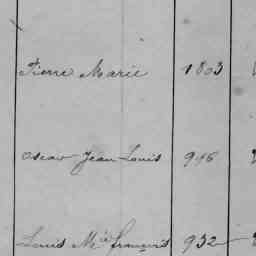 Pierre Marie 1803
Oscar Jean Louis 996
Louis Mie françois 932